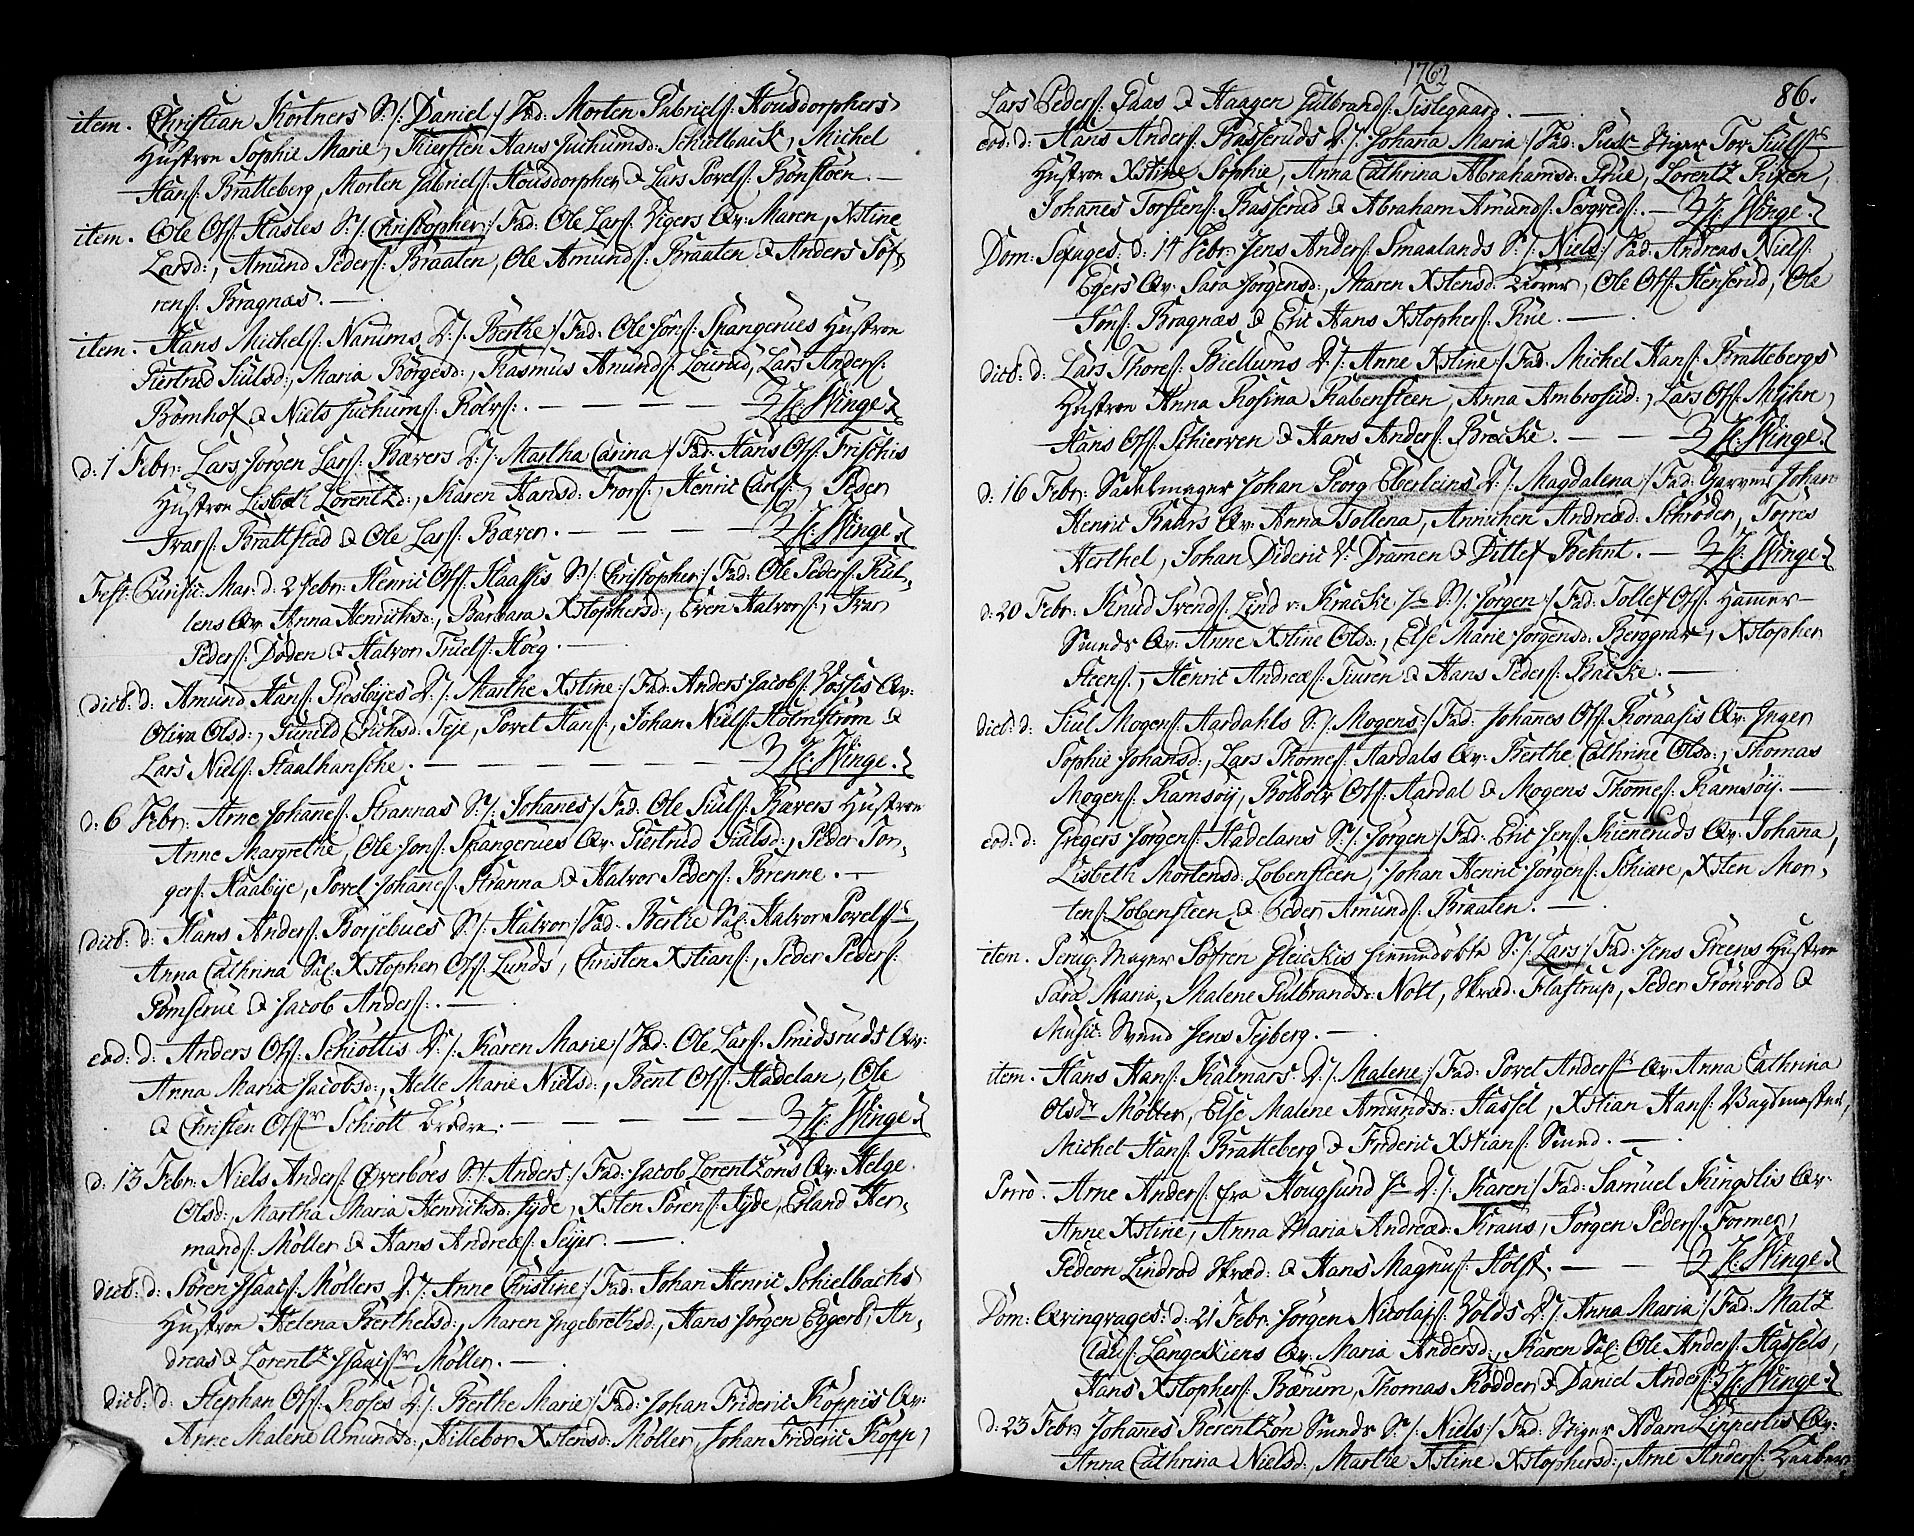 item. Christian Körtners S:/: Daniel :/ Fad: Morten Gabriels: Housdorphers
Hustroe Sophie Marie, Kiersten Hans Juchumsd: Schielback, Michel
Hans: Bratteberg, Morten Gabriels: Housdorpher & Lars Povels: Bönstöen. —
item. Ole Ols: Hasles S:/: Christopher :/ Fad: Ole Lars: Vigers Qv: Maren, Xstine
Larsd:, Amund Peders: Braaten, Ole Amunds: Braaten & Anders Söf-
rens: Bragnæs. —
item. Hans Michels: Narums D:/: Berthe :/ Fad: Ole Jons: Spangerues Hustroe
Giertrud Siulsd:, Maria Börgesd:, Rasmus Amunds: Lourud, Lars Anders:
Bömhof & Niels Juchums: Rolvs:. — — — — H: Winge.
d: 1 Febr: Lars Jörgen Lars: Bævers D:/: Martha Carina :/ Fad: Hans Ols: Frischis
Hustroe Lisbeth Lorentzd:, Karen Hansd: Frors:, Henric Carls:, Peder
Ivars: Brattstad & Ole Lars: Bæver. — — — H: Winge.
Fest: Purific: Mar: d: 2 Febr: Henric Ols: Haassis S:/: Christopher :/ Fad: Ole Peders: Kul-
lens Qv: Anna Henrichsd:, Barbara Xstophersd:, Even Halvors:, Ivar
Peders: Doden & Halvor Truels: Höeg. —
dict: d: Amund Hans: Presbyes D:/: Marthe Xstine :/ Fad: Anders Jacobs: Vossis Qv:
Oliva Olsd:, Gunild Erichsd: Teje, Povel Hans:, Johan Niels: Holmström &
Lars Niels: Staalhansche. — — — — H: Winge.
d: 6 Febr: Arne Johanes: Strannas S:/: Johanes :/ Fad: Ole Siuls: Bævers Hustroe
Anne Margrethe, Ole Jons: Spangerues Qv: Giertrud Siulsd:, Peder Tor-
gers: Kaabye, Povel Johanes: Stranna & Halvor Peders: Brenne. —
dict: d: Hans Anders: Boryebues S:/: Halvor :/ Fad: Berthe Sal: Halvor Povels:
Anna Cathrina Sal: Xstopher Ols: Lunds, Christen Xstians:, Peder Peders:
Gomserue & Jacob Anders:. —
eod: d: Anders Ols: Schiöttis D:/: Karen Marie :/ Fad: Ole Lars: Smidsruds Qv:
Anna Maria Jacobsd:, Helle Marie Nielsd:, Bent Ols: Hadelan, Ole
& Christen Ols: Schiött Brödre. — — — H: Winge.
d: 13 Febr: Niels Anders: Överboes S:/: Anders :/ Fad: Jacob Lorentzons Qv: Helge
Olsd:, Martha Maria Henrichsd: Jyde, Xsten Sörens: Jyde, Erland Her-
mands: Möller & Hans Andreæs: Seyer. —
dict: d: Sören Isaacs: Möllers D:/: Anne Christine :/ Fad: Johan Henric Schielbachs
Hustroe Helena Berthelsd:, Maren Ingebrethsd:, Hans Jörgen Eggert, An-
dreas & Lorentz Isaacs: Möller. —
dict: d: Stephan Ols: Roses D:/: Berthe Marie :/ Fad: Johan Frideric Koppis Qv:
Anne Malene Amundsd:, Hilleboe Xstensd: Möller, Johan Frideric Kopp,
1762
86.
Lars Peders: Paas & Haagen Gulbrands: Tislegaard. —
eod: d: Hans Anders: Basseruds D:/: Johana Maria :/ Fad: Tor Siuls:
Hustroe Xstine Sophie, Anna Cathrina Abrahamsd: Rue, Lorentz Rixen,
Johanes Torstens: Basserud & Abraham Amunds: Sergreds:. — H: Winge.
Dom: Sexages: d: 14 Febr: Jens Anders: Smaalands S:/: Niels :/ Fad: Andreas Niels:
Egers Qv: Sara Jörgensd:, Maren Xstensd: Berver, Ole Ols: Stenserud, Ole
Jöns: Bragnæs & Eric Hans Xstophers: Rue. —
dict: d: Lars Thores: Biellums D:/: Anne Xstine :/ Fad: Michel Hans: Brattebergs
Hustroe Anna Rosina Rabensteen, Anna Ambrosiid:, Lars Ols: Myhre,
Hans Ols: Schierven & Hans Anders: Bracke. — — H: Winge.
d: 16 Febr: Sadelmager Johan Georg Eberleins D:/: Magdalena :/ Fad: Garver Johan
Henric Baars Qv: Anna Tollena, Annichen Andreæd: Schröder, Torres
Herthel, Johan Dideric V: Dramen & Ditlef Behnt. — H: Winge.
d: 20 Febr: Knud Svends: Lind v: Kracke S:/: Jörgen :/ Fad: Tollef Ols: Hammer-
Smeds Qv: Anne Xstine Olsd:, Else Marie Jörgensd: Berggrav, Xstopher
Steens:, Henric Andreæs: Tiuren & Hans Peders: Bracke. —
dict: d: Siul Mogens: Aardahls S:/: Mogens :/ Fad: Johanes Ols: Roraasis Qv: Inger
Sophie Johansd:, Lars Thomes: Aardals Qv: Berthe Cathrine Olsd:, Thomas
Mogens: Ramsöy, Botbolv Ols: Aardal & Mogens Thomes: Ramsöy. —
eod: d: Gregers Jörgens: Hadelans S:/: Jörgen :/ Fad: Eric Jens: Kieneruds Qv: Johana,
Lisbeth Mortensd: Lobensteen, Johan Henric Jörgens: Schiære, Xsten Mor-
tens: Lobensteen & Peder Amunds: Braaten. —
item. Söfren Gleuckis S:/: Lars :/ Fad: Jens Greens Hustroe
Sara Maria, Malene Gulbrandsd: Nott, Skræd: Flastrup, Peder Grönvold &
Music: Svend Jens Tejberg. —
item. Hans Hans: Kalmars D:/: Malene :/ Fad: Povel Anders: Qv: Anna Cathrina
Olsdr Möller, Else Malene Amundsd: Hassel, Xstian Hans: Vagtmester,
Michel Hans: Bratteberg & Frideric Xstians: Smed. —
Porro. Arne Anders: fra Hougsund D:/: Karen :/ Fad: Samuel Kingelis Qv:
Anne Xstine, Anna Maria Andreæd: Kraus, Jörgen Peders: Former,
Gedeon Lindrad Skræd: & Hans Magnus: Holst. — — H: Winge.
Dom: Qvinqvages: d: 21 Febr: Jörgen Nicolajs: Volds D:/: Anna Maria :/ Fad: Matz
Claus: Langeskiens Qv: Maria Andersd:, Karen Sal: Ole Anders: Hassels,
Hans Xstophers: Bærum, Thomas Rödder & Daniel Anders: H: Winge.
d: 23 Febr: Johanes Berentzön Smeds S:/: Niels :/ Fad: Stiger Adam Lippertis Qv:
Anna Cathrina Nielsd:, Marthe Xstine Xstophersd:, Arne Anders: